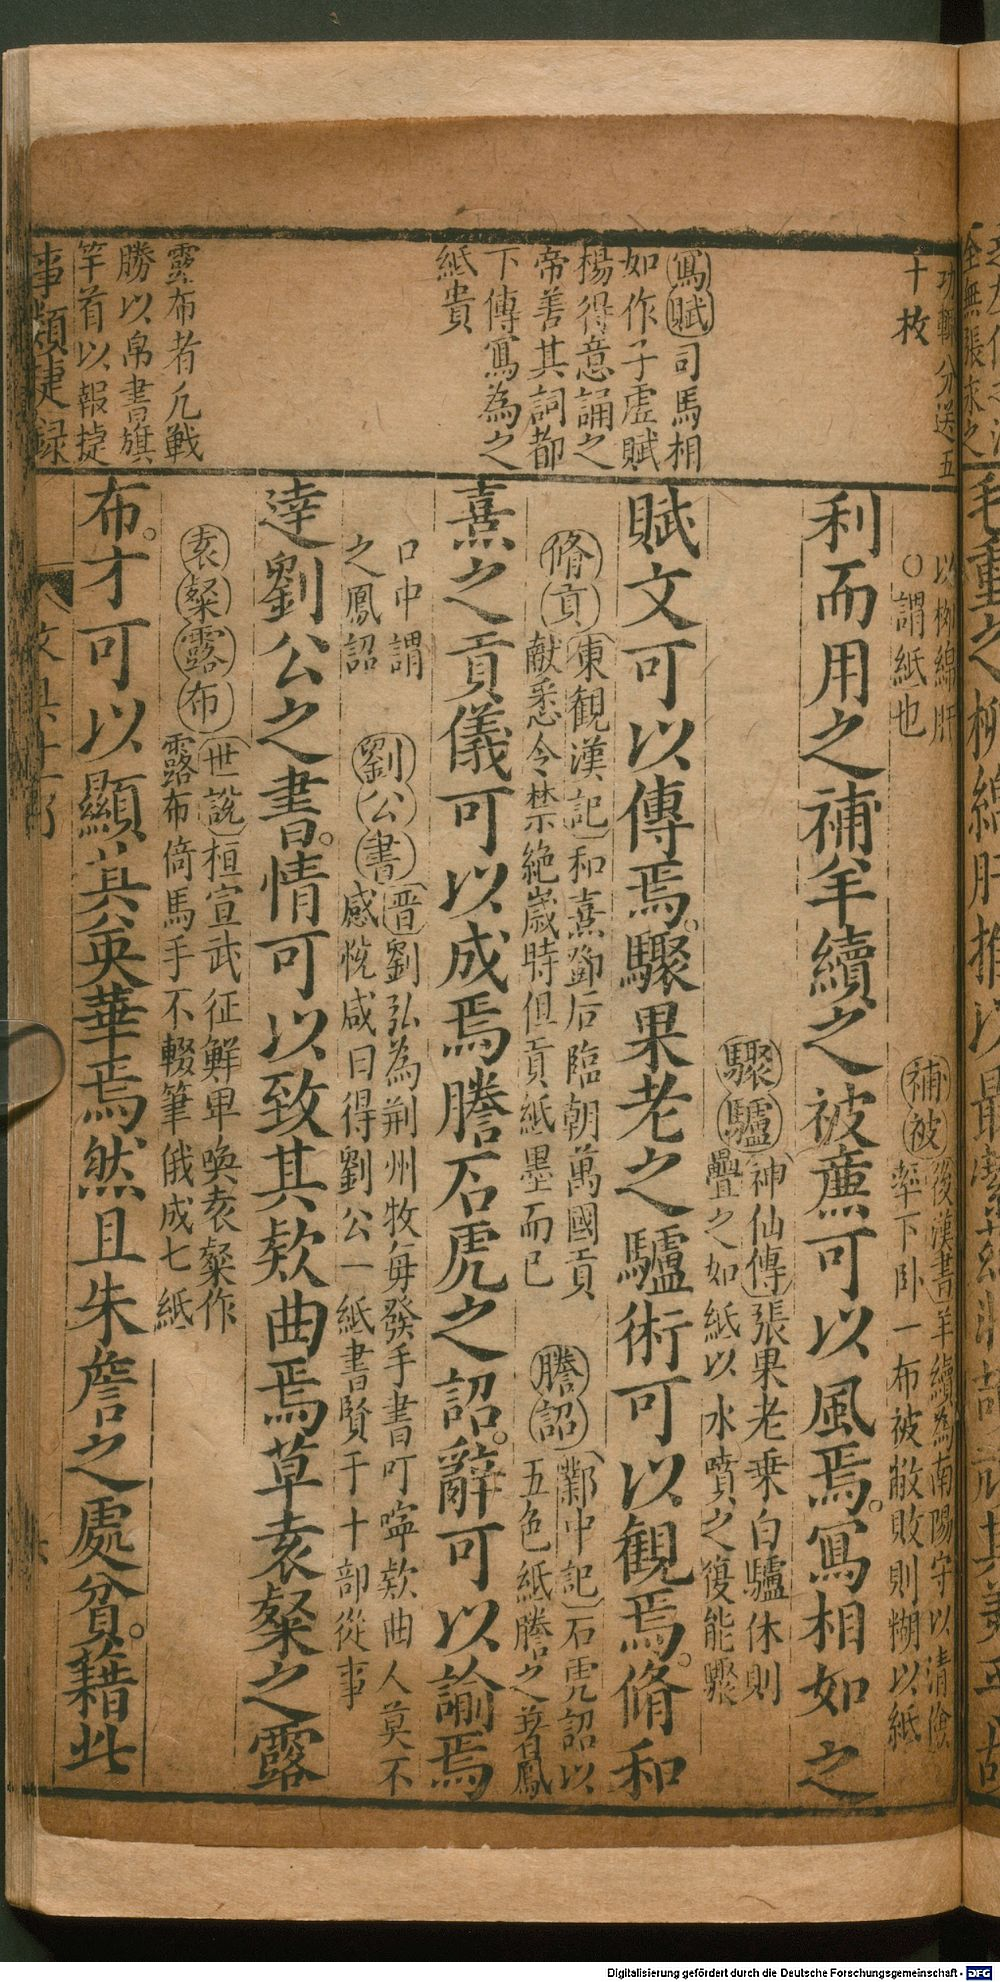 功輙分送五
十枚
寫賦司馬相
如作子虛賦
楊得意誦之
帝善其詞都
下傳寫為之
紙貴
露布者凡戰
勝以帛書旗
竿首以報捷
事類捷録
以栁綿肝
○謂紙也
補被後漢書羊續為南陽守以清儉
率下卧一布被敝敗則糊以紙
利而用之補羊續之被㢘可以風焉。寫相如之
驟驢神仙傳張果老乗白驢休則
疊之如紙以水噴之復能驟
賦文可以傳焉。驟果老之驢術可以觀焉。脩和
脩貢東觀漢記和熹鄧后臨朝萬國貢
献悉令禁絶嵗時但貢紙墨而已
謄詔鄴中記石虎詔以
五色紙謄之著鳳
熹之貢儀可以成焉謄石虎之詔。辭可以諭焉
口中謂
之鳳詔
劉公書晋劉弘為荆州牧每發手書叮嚀欵曲人莫不
感恱咸曰得劉公一紙書賢于十部從事
逹劉公之書。情可以致其欵曲焉草袁粲之露
袁粲露布世說桓宣武征鮮卑喚袁粲作
露布倚馬手不輟筆俄成七紙
布。才可以顯其英華焉然且朱詹之處貧。籍此